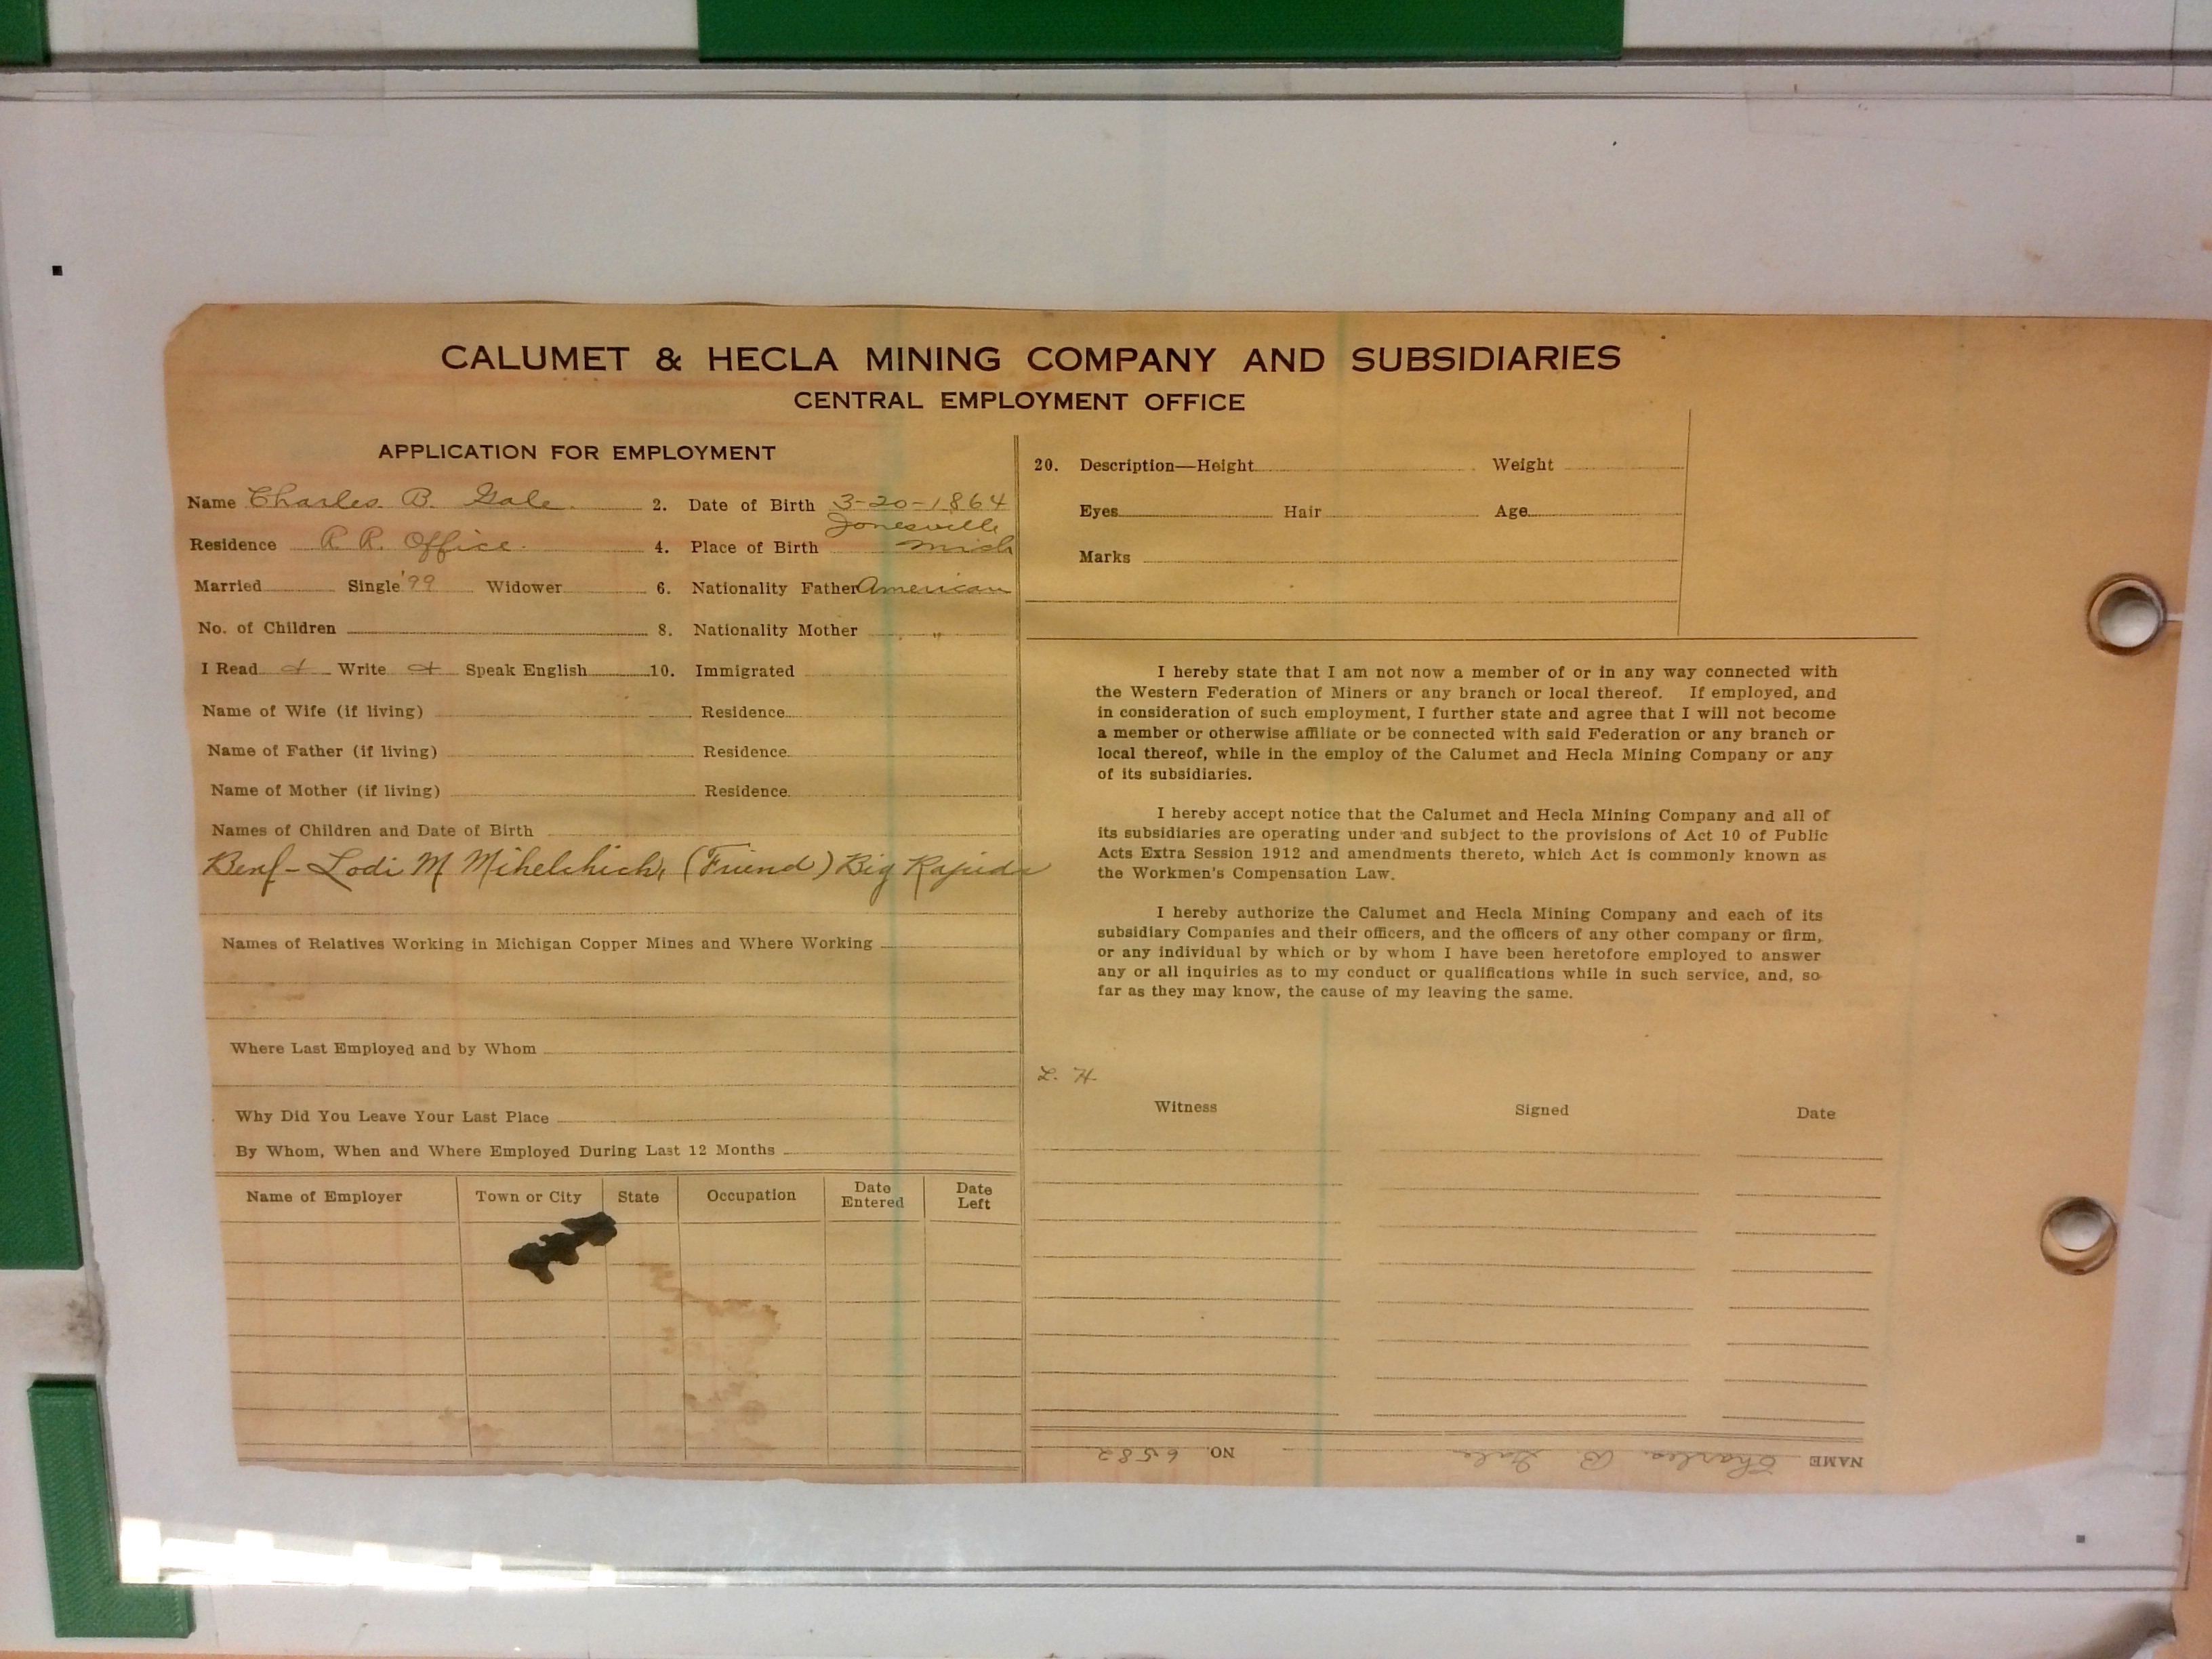 CALUMET & HECLA MINING COMPANY AND SUBSIDIARIES
CENTRAL EMPLOYMENT OFFICE
APPLICATION FOR EMPLOYMENT
Name Charles B. Gale 2. Date of Birth 3-20-1864
Residence R. R. Office 4. Place of Birth Jonesville Mich
Married Single '99 Widower 6. Nationality Father American
No. of Children 8. Nationality Mother "
I Read Write Speak English 10. Immigrated
Name of Wife (if living) Residence
Name of Father (if living) Residence
Name of Mother (if living) Residence
Names of Children and Date of Birth
Benf- Lodi M Mihelchich, (Friend) Big Rapids
Names of Relatives Working in Michigan Copper Mines and Where Working
Where Last Employed and by Whom
Why Did You Leave Your Last Place
By Whom, When and Where Employed During Last 12 Months
Name of Employer Town or City State Occupation Date Entered Date Left
20. Description—Height Weight
Eyes Hair Age
Marks
I hereby state that I am not now a member of or in any way connected with
the Western Federation of Miners or any branch or local thereof. If employed, and
in consideration of such employment, I further state and agree that I will not become
a member or otherwise affiliate or be connected with said Federation or any branch or
local thereof, while in the employ of the Calumet and Hecla Mining Company or any
of its subsidiaries.
I hereby accept notice that the Calumet and Hecla Mining Company and all of
its subsidiaries are operating under and subject to the provisions of Act 10 of Public
Acts Extra Session 1912 and amendments thereto, which Act is commonly known as
the Workmen's Compensation Law.
I hereby authorize the Calumet and Hecla Mining Company and each of its
subsidiary Companies and their officers, and the officers of any other company or firm,
or any individual by which or by whom I have been heretofore employed to answer
any or all inquiries as to my conduct or qualifications while in such service, and, so
far as they may know, the cause of my leaving the same.
L. H.
Witness Signed Date
NAME Charles B. Gale NO. 6582